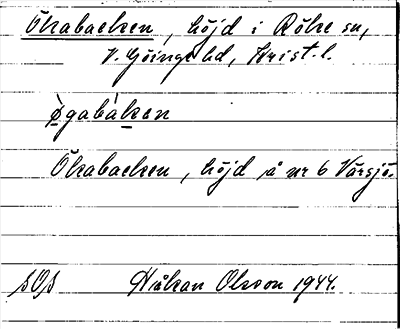 Ökabacken, höjd i Röke sn,
V. Göinge hd, Krist. l.
ø̀gabáken
Ökabacken, höjd å nr 6 Värsjö.
SOS Håkan Olsson 1944.